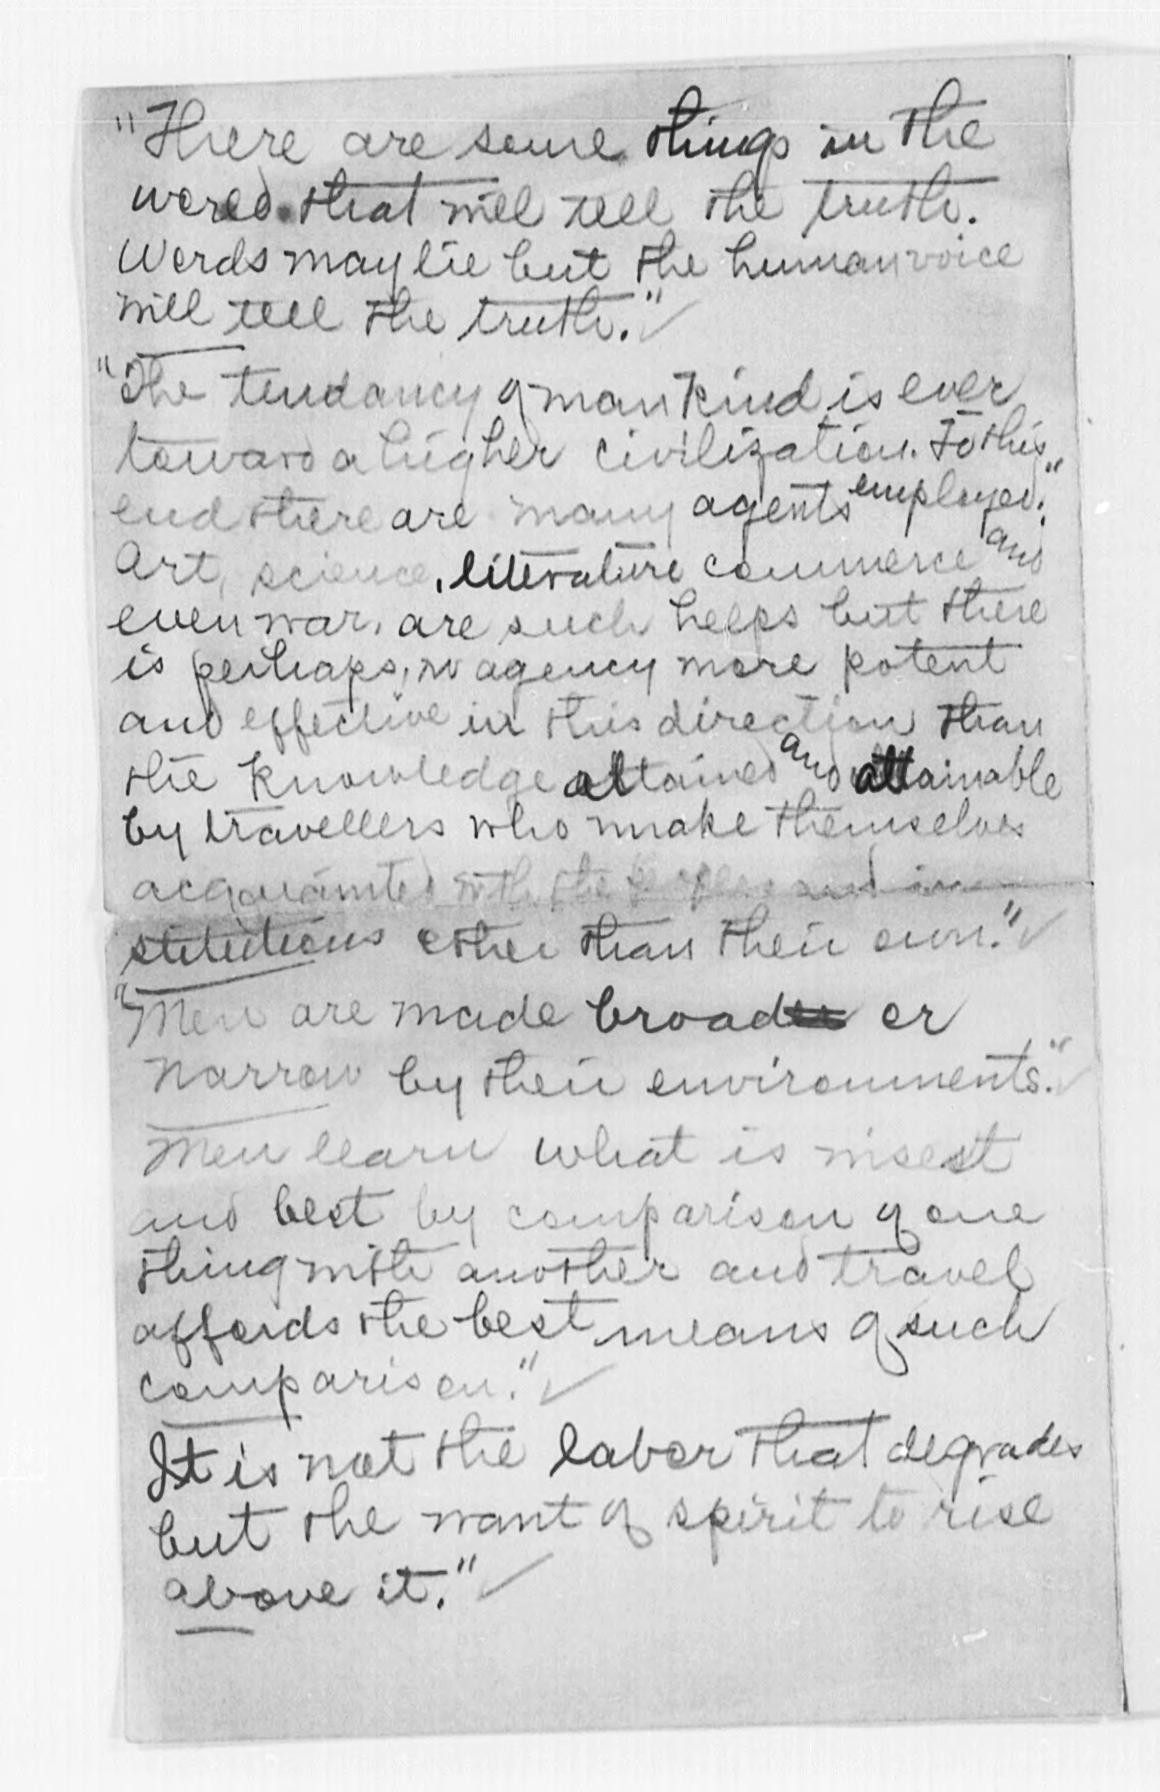 "There are some things in the
world that will tell the truth.
Words may lie but the human voice
will tell the truth."
"The tendancy of mankind is ever
toward a higher civilization. To this
end there are many agents employed."
Art, science, literature commerce and
even war, are such helps but there
is perhaps, no agency more potent
and effective in this direction than
the knowledge attained and attainable
by travellers who make themselves
acquainted with the people and in-
stitutions other than their own."
"Men are made broad or
narrow by their environments."
Men learn what is wisest
and best by comparison of one
thing with another and travel
affords the best means of such
comparison."
It is not the labor that degrades
but the want of spirit to rise
above it."